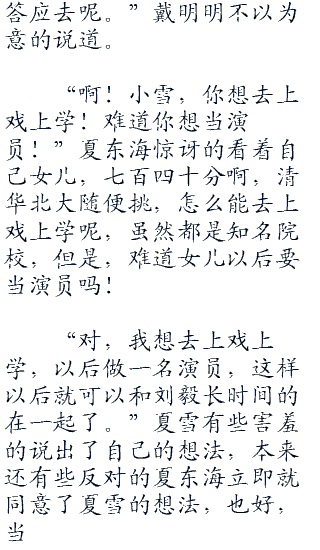 答应去呢。”戴明明不以为
意的说道。
“啊！小雪，你想去上
戏上学！难道你想当演
员！”夏东海惊讶的看着自
己女儿，七百四十分啊，清
华北大随便挑，怎么能去上
戏上学呢，虽然都是知名院
校，但是，难道女儿以后要
当演员吗！
“对，我想去上戏上
学，以后做一名演员，这样
以后就可以和刘毅长时间的
在一起了。”夏雪有些害羞
的说出了自己的想法，本来
还有些反对的夏东海立即就
同意了夏雪的想法，也好，
当